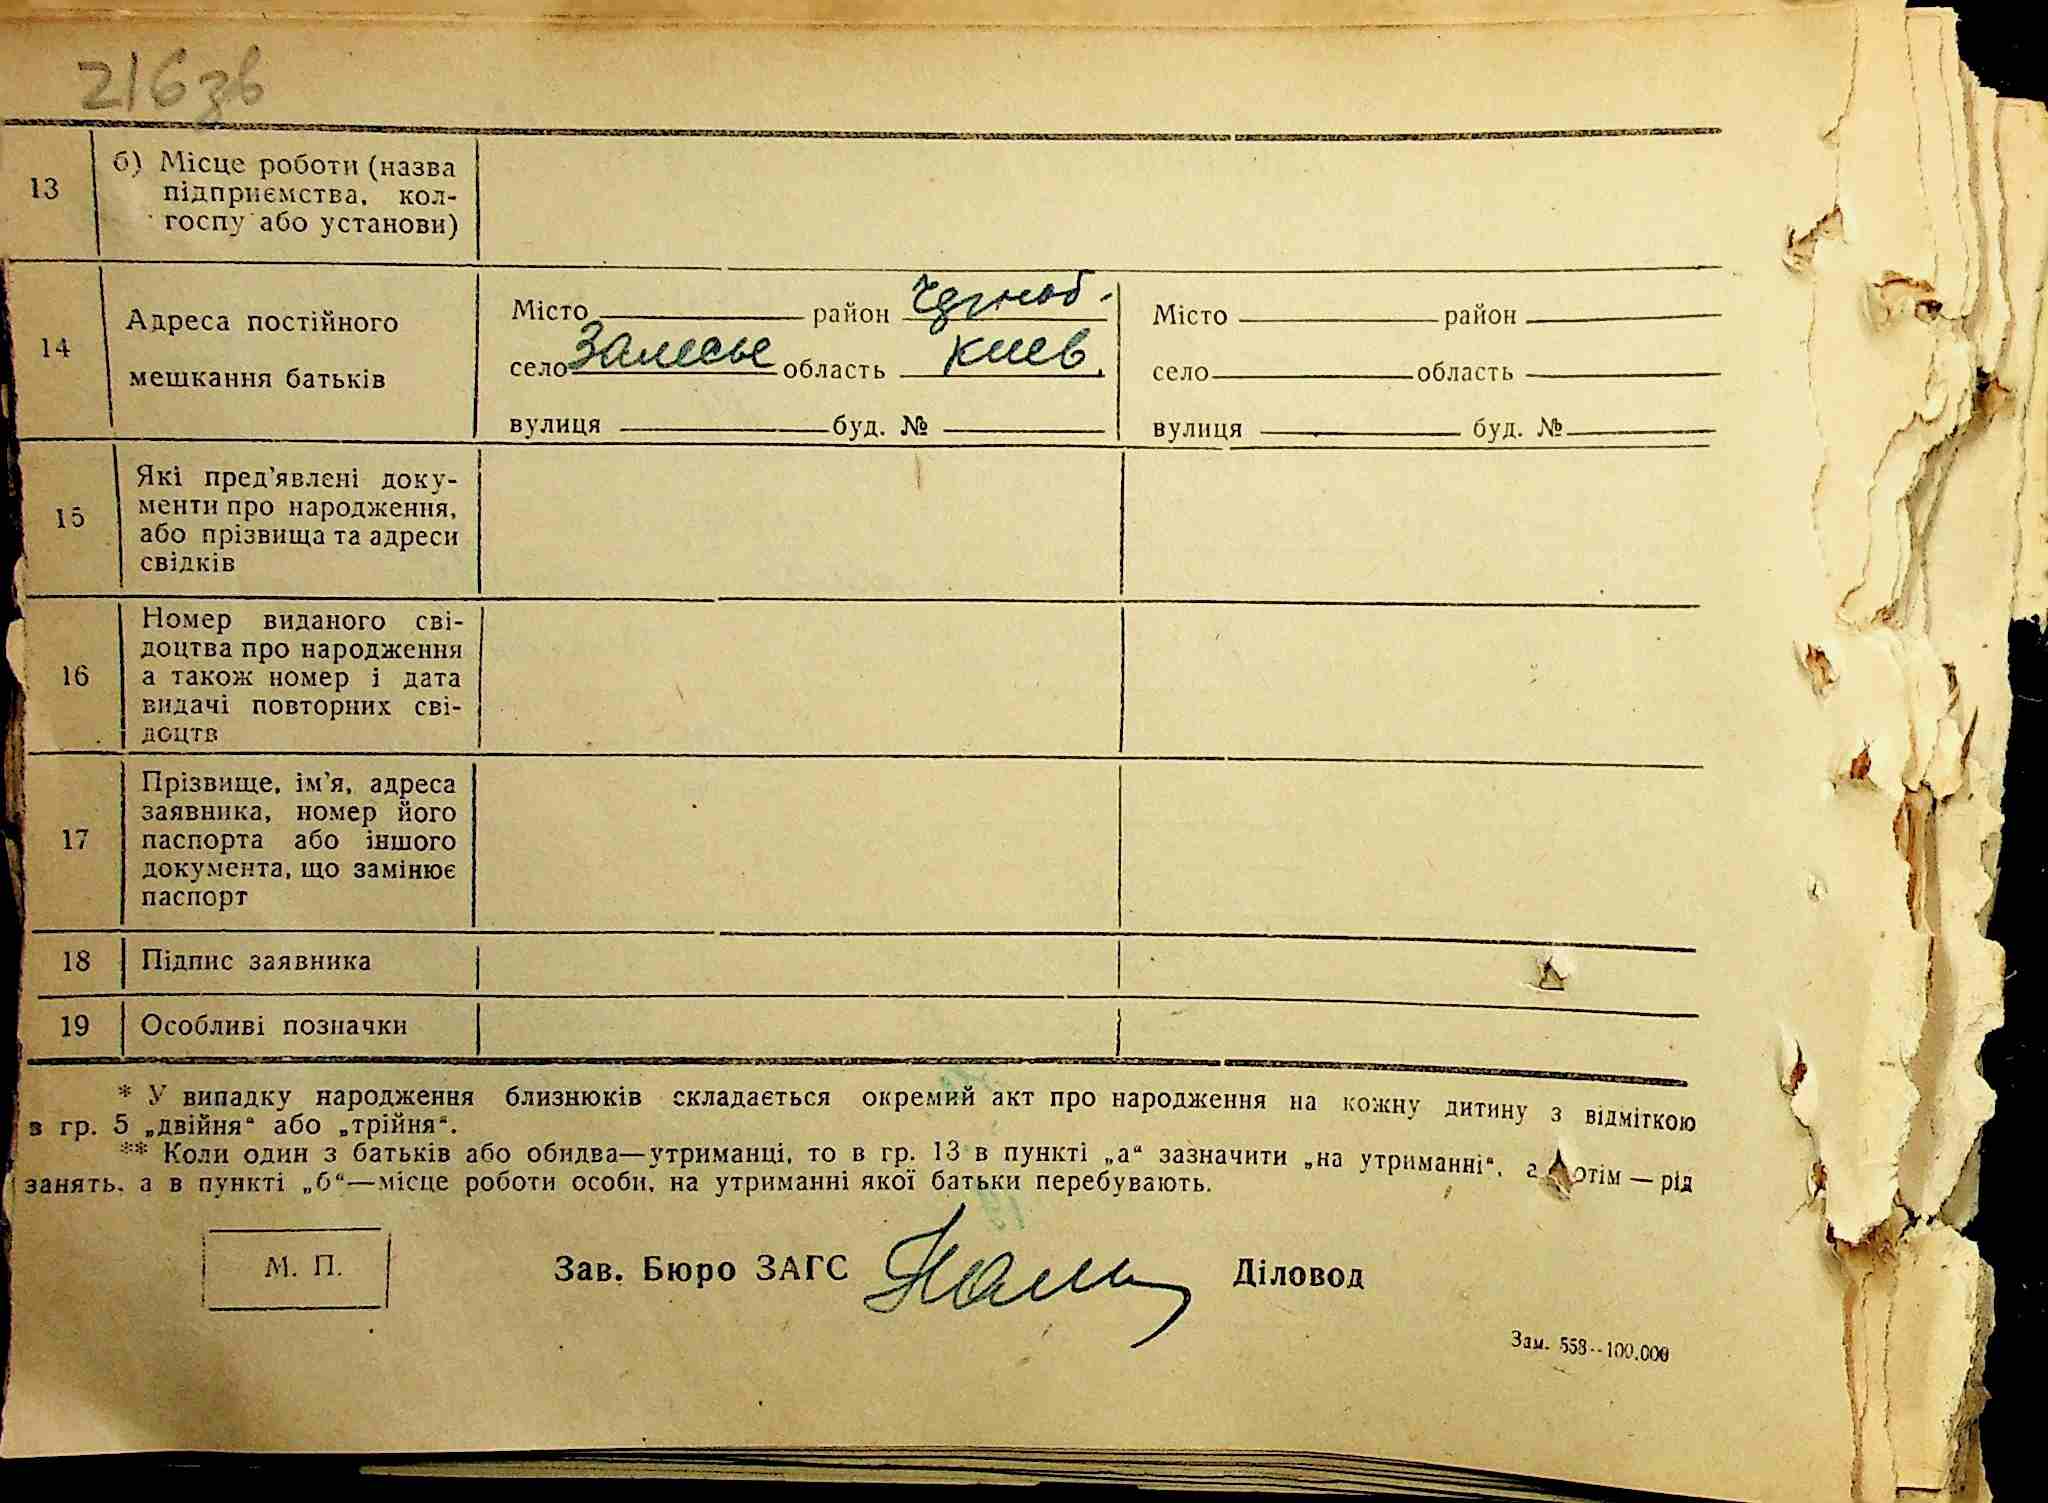 216 зв
13
б) Місце роботи (назва
підприємства, кол-
госпу або установи)
14
Адреса постійного
мешкання батьків
Місто район Черноб.
село Залесье область Киев.
вулиця буд. №
Місто район
село область
вулиця буд. №
15
Які пред'явлені доку-
менти про народження,
або прізвища та адреси
свідків
16
Номер виданого сві-
доцтва про народження
а також номер і дата
видачі повторних сві-
доцтв
17
Прізвище, ім'я, адреса
заявника, номер його
паспорта або іншого
документа, що замінює
паспорт
18 Підпис заявника
19 Особливі позначки
* У випадку народження близнюків складається окремий акт про народження на кожну дитину з відміткою
в гр. 5 „двійня“ або „трійня“.
** Коли один з батьків або обидва—утриманці, то в гр. 13 в пункті „а“ зазначити „на утриманні“, а — рід
занять, а в пункті „б“—місце роботи особи, на утриманні якої батьки перебувають.
М. П.
Зав. Бюро ЗАГС Діловод
Зам. 558--100.000